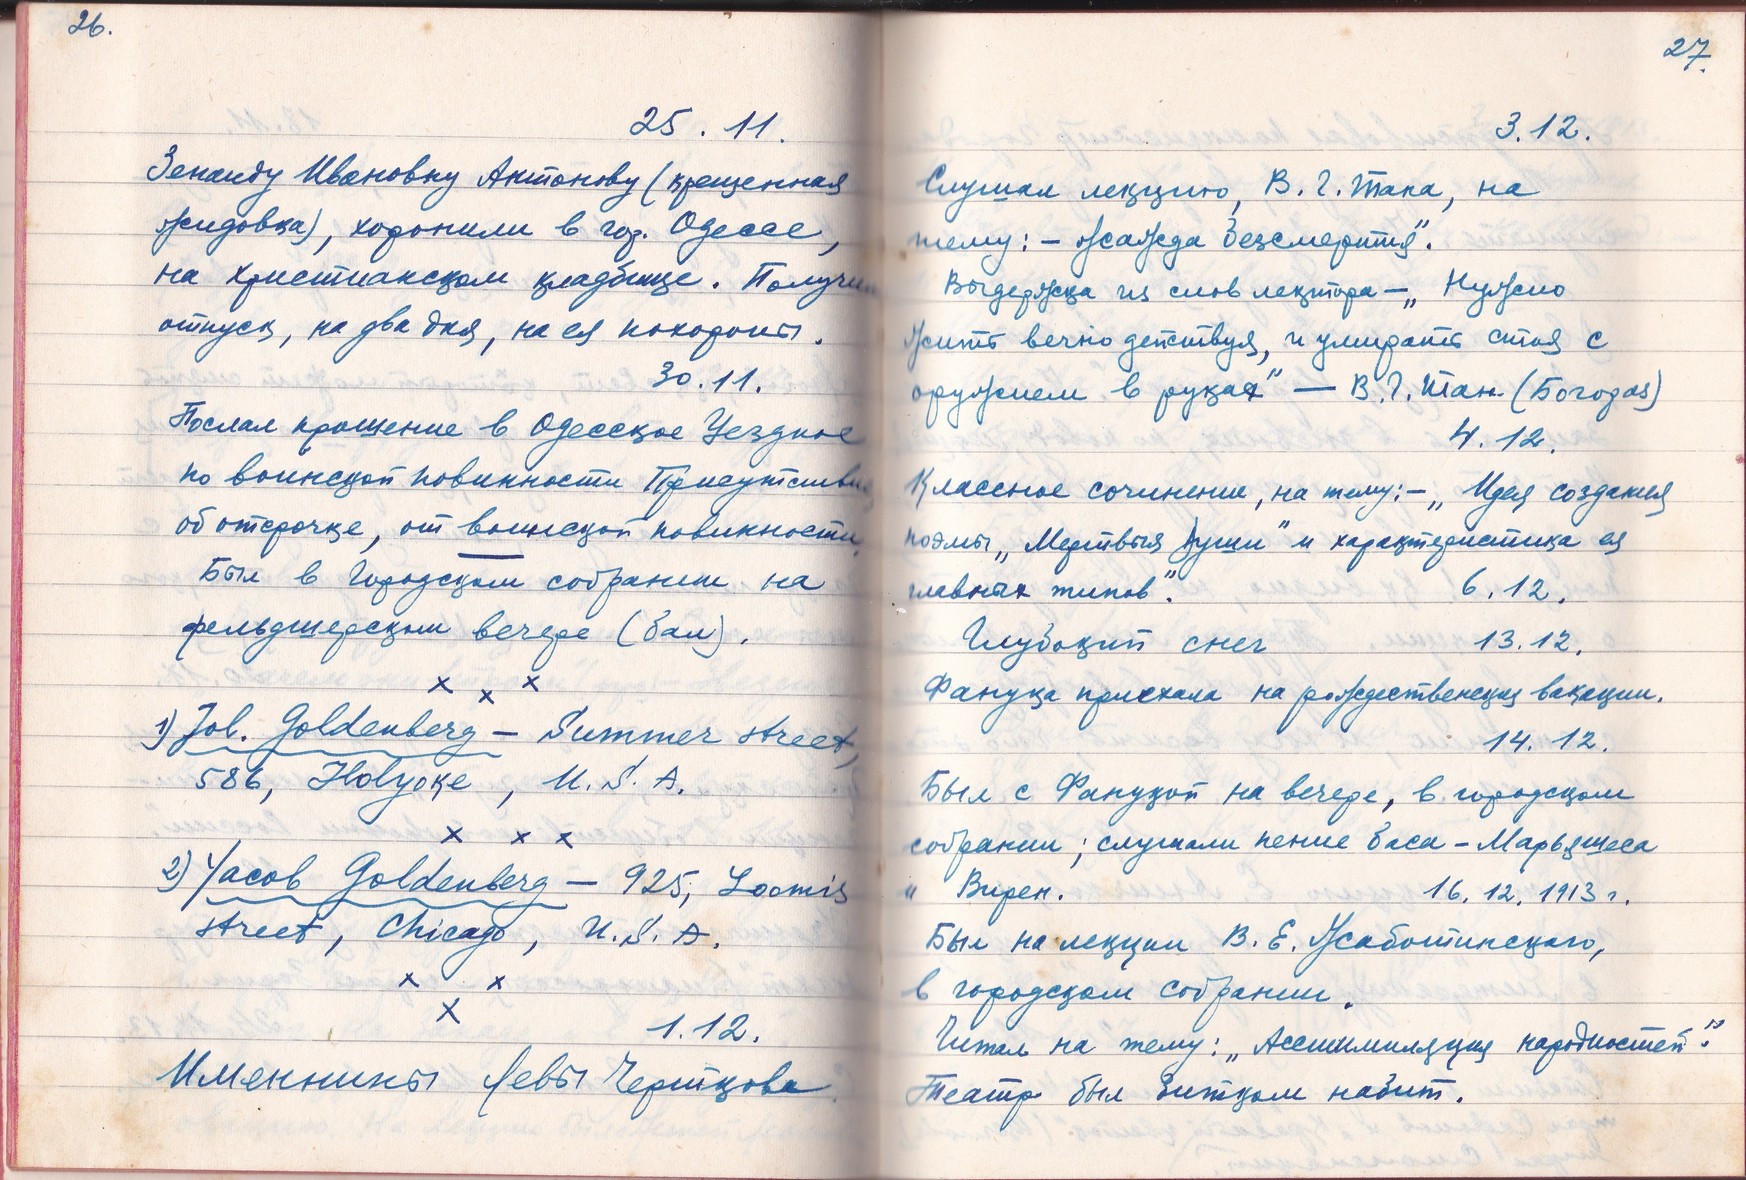 26.
25. 11.
Зенаиду Ивановну Антонову (крещенная
жидовка), хоронили в гор. Одессе,
на христианском кладбище. Получил
отпуск, на два дня, на ея похороны.
30.11.
Послал прошение в Одесское Уездное
по воинской повинности Присутствие
об отсрочке, от воинской повинности.
Был в Городском собрании на
фельдшерском вечере (бал).
x x x
1) Job. Goldenberg – Summer street,
586, Holyoke, U. S. A.
x x x
2) Yacob Goldenberg – 925, Loomis
street, Chicago, U. S. A.
x x
x
1.12.
Именнины Левы Черткова
27.
3.12.
Слушал лекцию, В. Г. Тана, на
тему: – жажда безсмертия".
Выдержка из слов лектора – „Нужно
жить вечно действуя, и умирать стоя с
оружием в руках" — В. Г. Тан (Богораз)
4. 12.
Классное сочинение, на тему: – „Идея создания
поэмы „Мертвыя души" и характеристика ея
главных типов".
6. 12.
Глубокий снег
13.12.
Фанука приехала на рождественския вакации.
14. 12.
Был с Фанукой на вечере, в городском
собрании; слушали пение баса – Марьяшеса
и Вирен.
16. 12. 1913 г.
Был на лекции В. Е. Жаботинскаго,
в городском собрании.
Читал на тему: „Ассимиляция народностей".
Театр был битком набит.